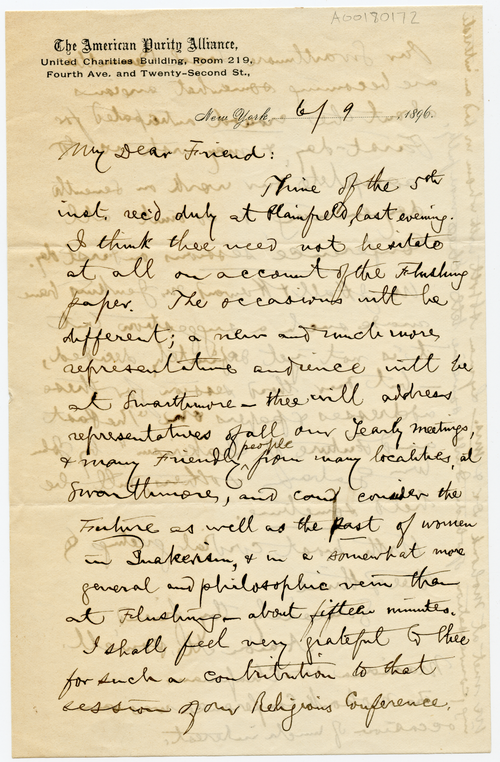 A00180172
The American Purity Alliance,
United Charities Building, Room 219,
Fourth Ave. and Twenty-Second St.,
New York 6/9 1896.
My Dear Friend:
Thine of the 5th
inst. rec'd duly at Plainfield, last evening.
I think thee need not hesitate
at all on account of the Flushing
paper. The occasions will be
different; a new and much more
representative audience will be
at Swarthmore – thee will address
representatives of all our Yearly Meetings,
& many Friendly people from many localities, at
Swarthmore, and could consider the
Future as well as the past of women
in Quakerism, & in a somewhat more
general and philosophic vein than
at Flushing – about fifteen minutes.
I shall feel very grateful to thee
for such a contribution to that
session of our Religious Conference.